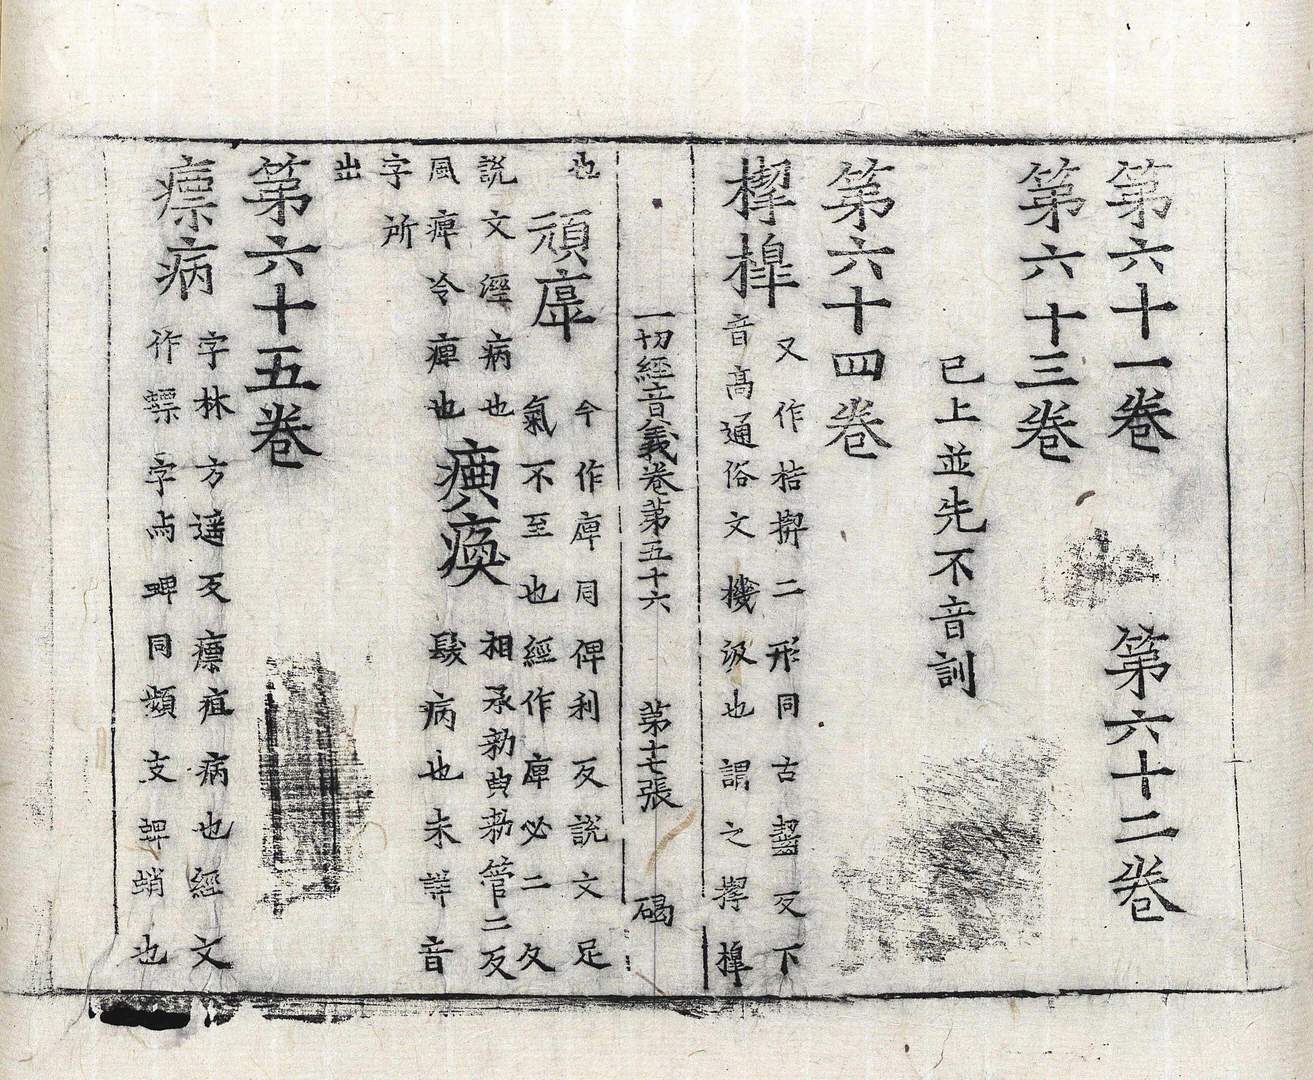 第六十一卷 第六十二卷
第六十三卷
已上並先不音訓
第六十四卷
楔槹又作桔㧳二形同古齧反下
音高通俗文機汲也謂之㨒槹
一切經音義卷第五十六 第十七張 碣
也頑㾏今作庳同俾利反說文足
氣不至也經作庳必二久
說文溼病也相承勑典勑管二反
風痺冷痺也㿉瘓
鬁病也未詳音
字所
出
第六十五卷
瘭病字林方遥反瘭疽病也經文
作螵字与蜱同頻支反蜱蛸也